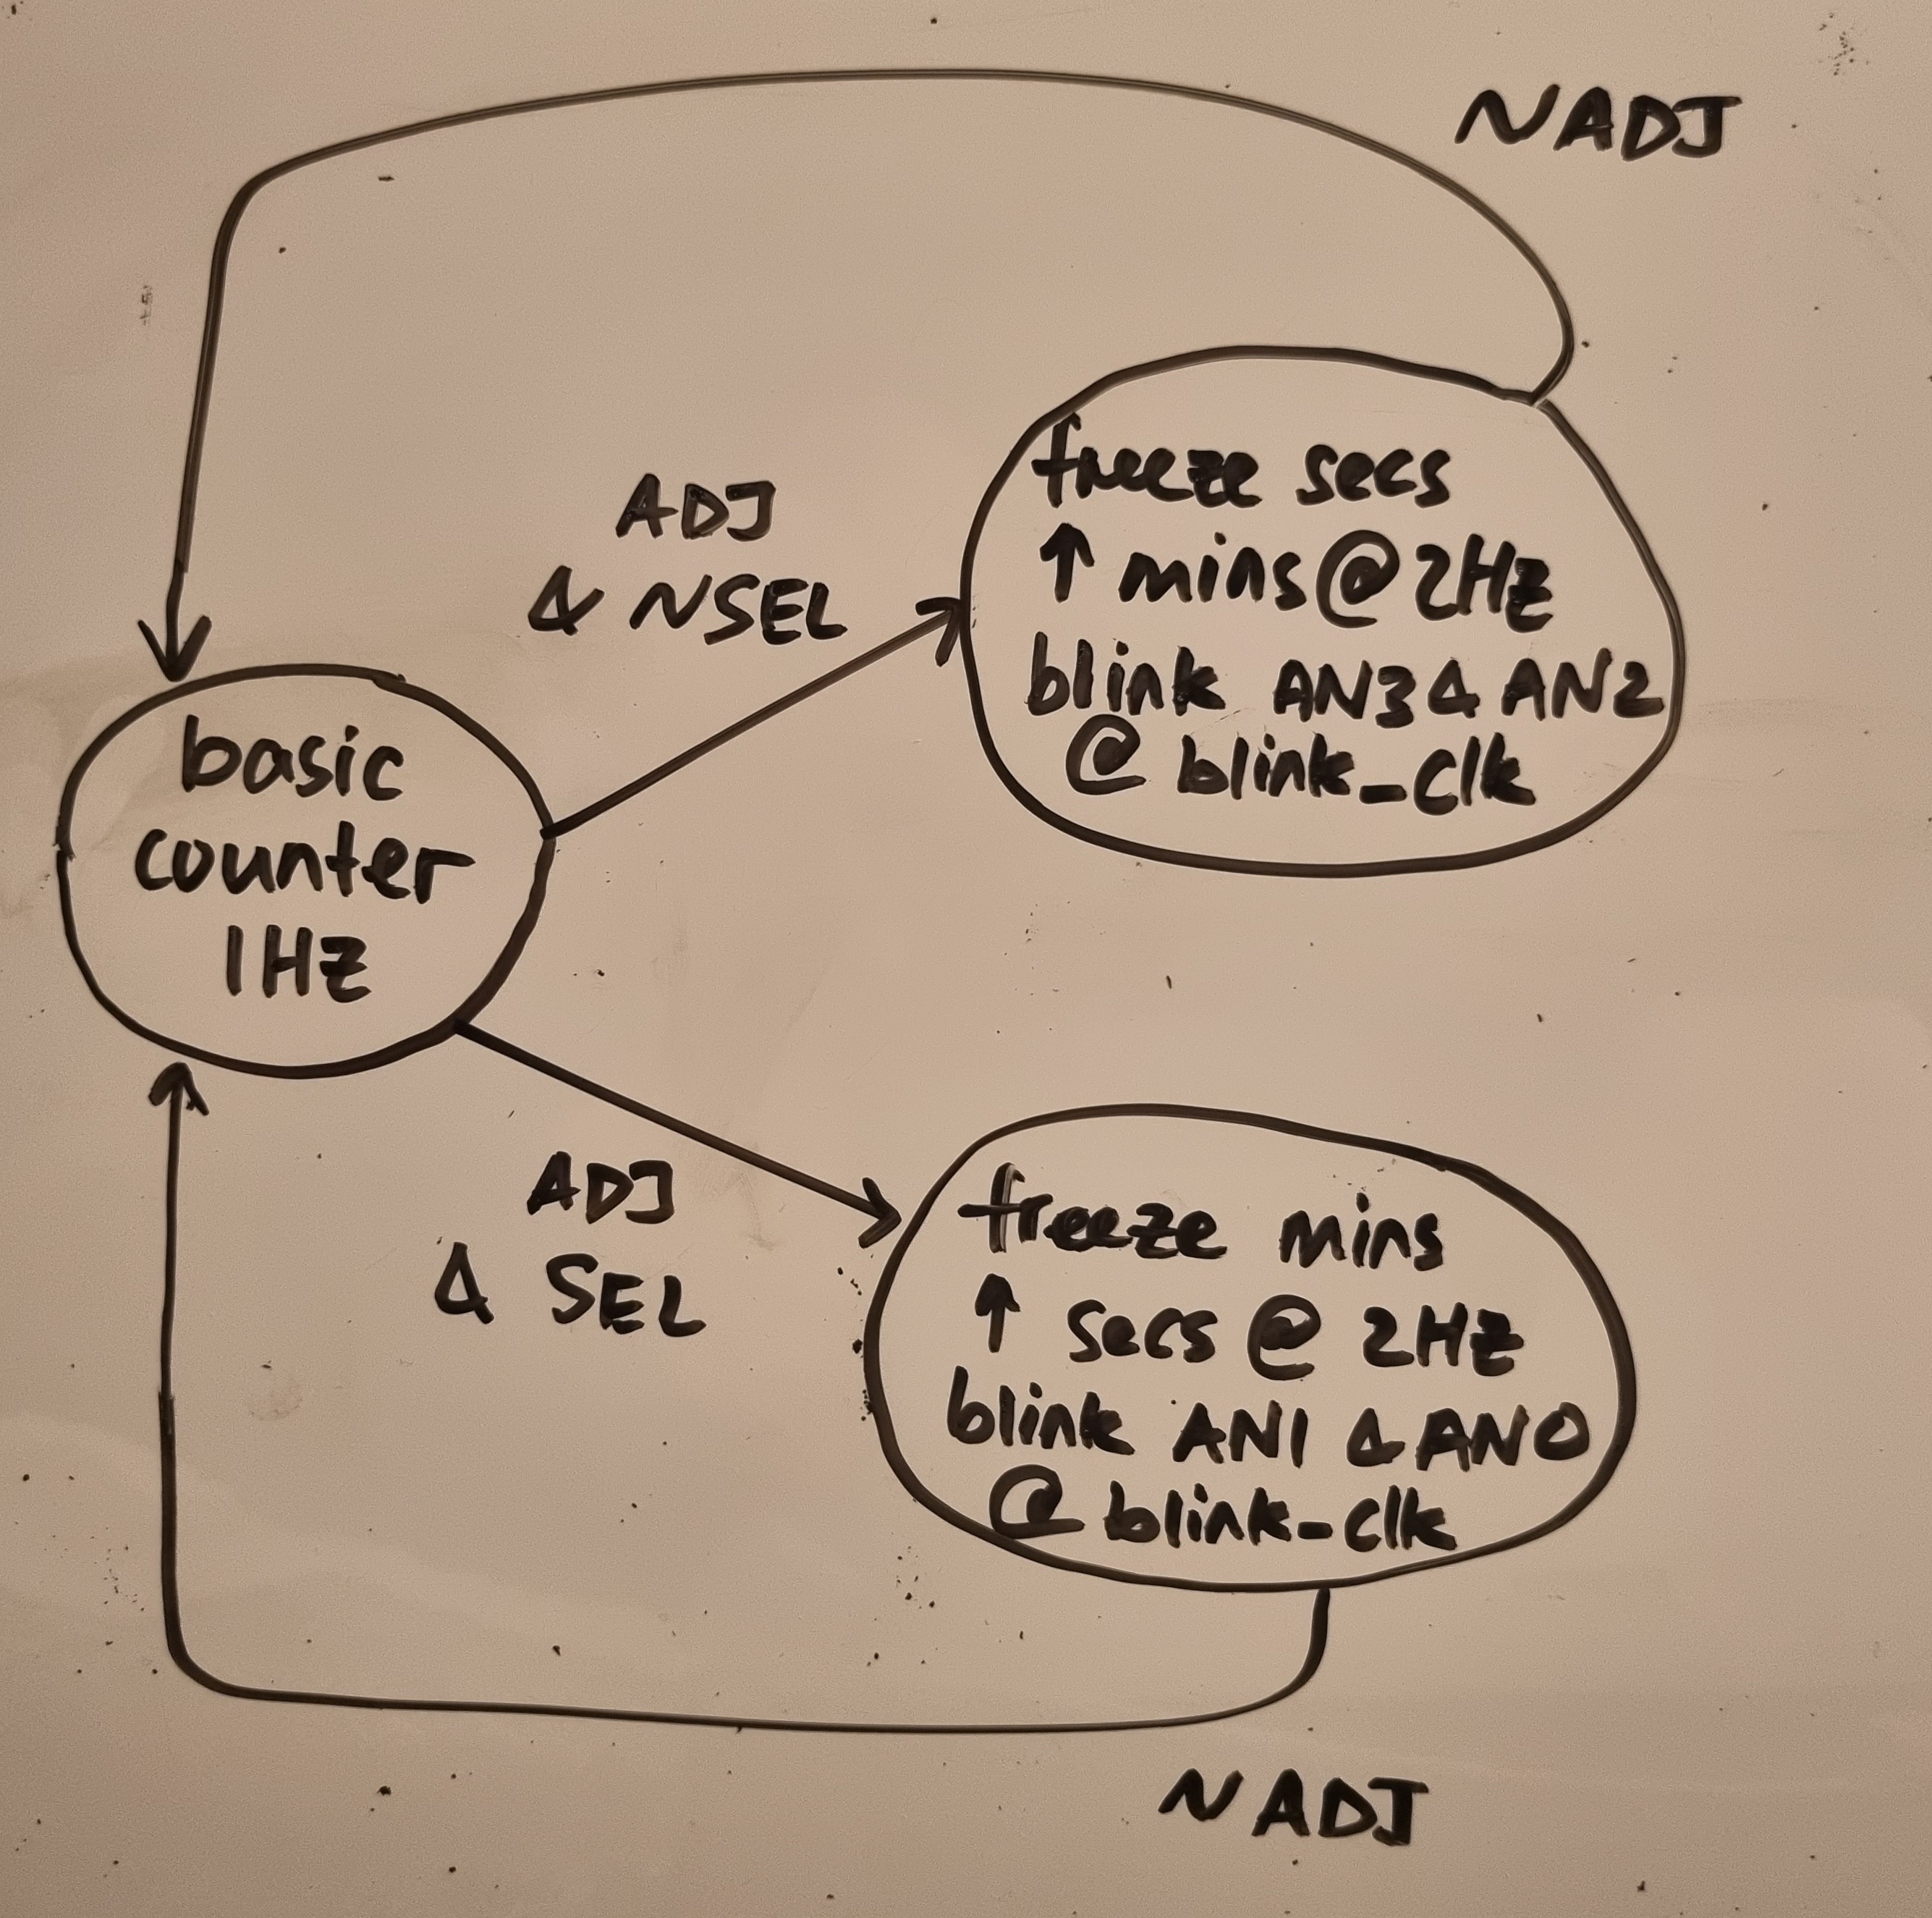 NADJ
ADJ
& NSEL
freeze secs
↑ mins @ 2HZ
blink AN3 & AN2
@ blink_clk
basic
counter
1HZ
ADJ
& SEL
freeze mins
↑ secs @ 2HZ
blink AN1 & AN0
@ blink_clk
NADJ